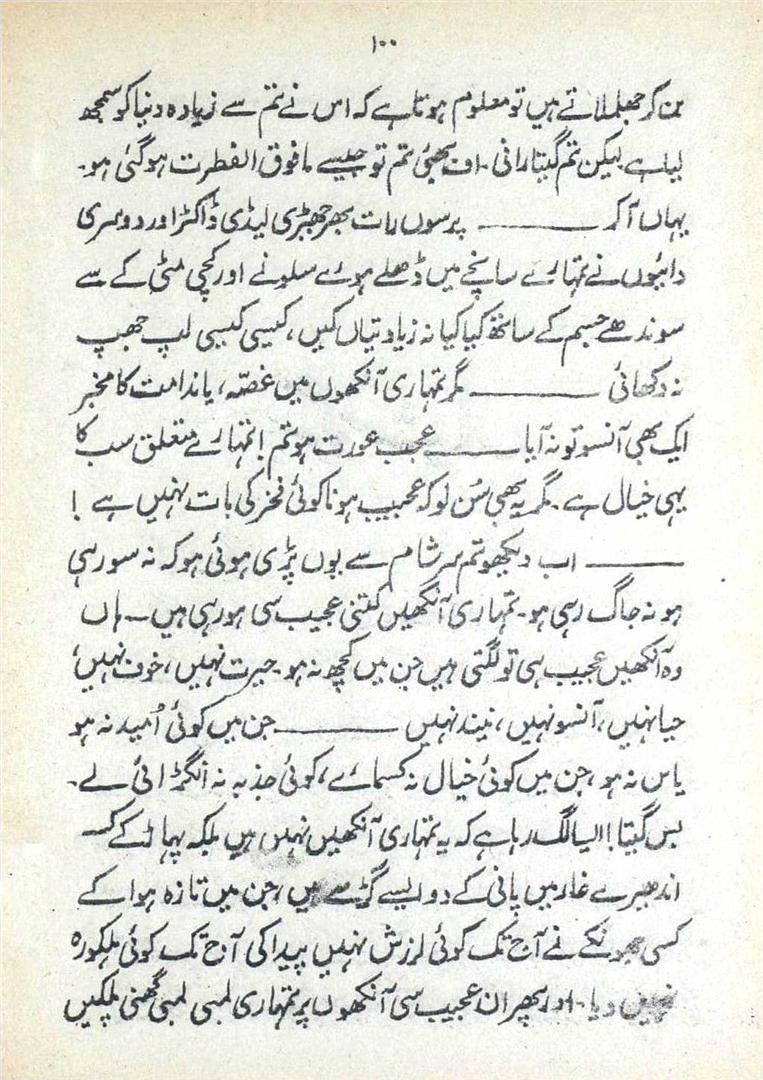 ۱۰۰
بن کر جھلملاتے ہیں تو معلوم ہوتا ہے کہ اس نے تم سے زیادہ دنیا کو سمجھ
لیا ہے لیکن تم گیتا رانی۔ اف بھئی تم تو جیسے مافوق الفطرت ہو گئی ہو۔
یہاں آ کر ——— پرسوں رات بھر جھبڑی لیڈی ڈاکٹر اور دوسری
دائیوں نے تمہارے سانچے میں ڈھلے ہوئے سلونے اور کچی مٹی کے سے
سوندھے جسم کے ساتھ کیا کیا نہ زیادتیاں کیں، کیسی کیسی لپ جھپ
نہ دکھائی ——— مگر تمہاری آنکھوں میں غصّہ، یا ندامت کا مخبر
ایک بھی آنسو تو نہ آیا ——— عجب عورت ہو تم! تمہارے متعلق سب کا
یہی خیال ہے۔ مگر یہ بھی سُن لو کہ عجیب ہونا کوئی فخر کی بات نہیں ہے!
——— اب دیکھو تم سرِشام سے یوں پڑی ہوئی ہو کہ نہ سو رہی
ہو نہ جاگ رہی ہو۔ تمہاری آنکھیں کتنی عجیب سی ہو رہی ہیں — ہاں
وہ آنکھیں عجیب ہی تو لگتی ہیں جن میں کچھ نہ ہو۔ حیرت نہیں، خوف نہیں،
حیا نہیں، آنسو نہیں، نیند نہیں ——— جن میں کوئی اُمید نہ ہو
یاس نہ ہو، جن میں کوئی خیال نہ کسمائے، کوئی جذبہ نہ انگڑائی لے۔
بس گیتا! ایسا لگ رہا ہے کہ یہ تمہاری آنکھیں نہیں ہیں بلکہ پہاڑ کے
اندھیرے غار میں پانی کے دو ایسے گڑھے ہیں، جن میں تازہ ہوا کے
کسی جھونکے نے آج تک کوئی لرزش نہیں پیدا کی آج تک کوئی ہلکورہ
نہیں دیا۔ اور پھر ان عجیب سی آنکھوں پر تمہاری لمبی لمبی گھنی پلکیں